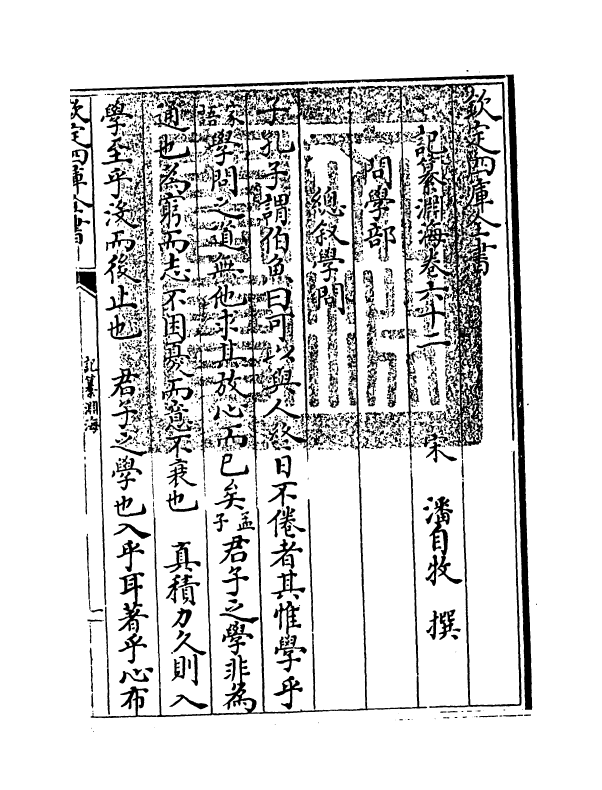 欽定四庫全書
記纂淵海卷六十二
宋 潘自牧 撰
問學部
總叙學問
子孔子謂伯魚曰可以與人終日不倦者其惟學乎
家語學問之道無他求其放心而已矣孟子君子之學非為
通也為窮而志不困憂而意不衰也 真積力久則入
學至乎没而後止也 君子之學也入乎耳著乎心布
欽定四庫全書
記纂淵海
一